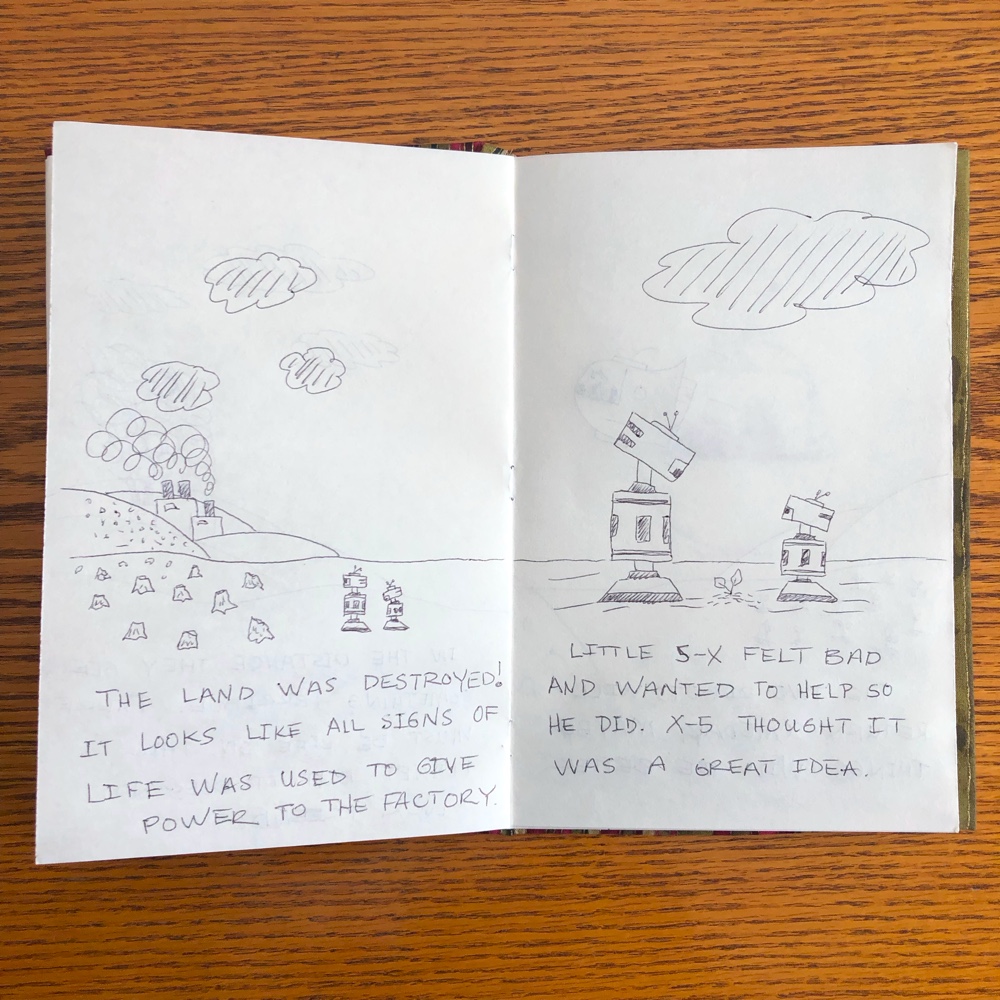 THE LAND WAS DESTROYED!
IT LOOKS LIKE ALL SIGNS OF
LIFE WAS USED TO GIVE
POWER TO THE FACTORY.
LITTLE 5-X FELT BAD
AND WANTED TO HELP SO
HE DID. X-5 THOUGHT IT
WAS A GREAT IDEA.